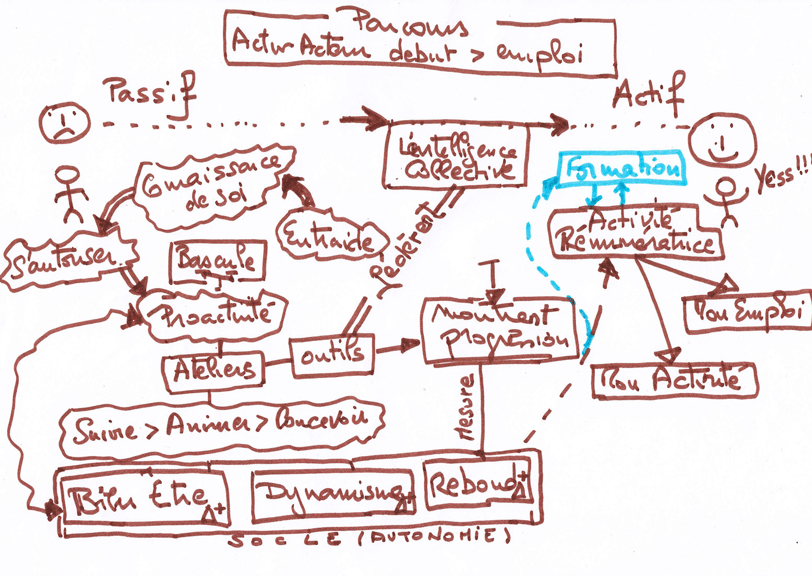 Parcours
debut > emploi
Passif
Actif
L'intelligence
Collective
Formation
Yess!!!
Connaissance
de soi
Entraide
Activité
Rémunératrice
S'autoriser
Bascule
Fédérent
Proactivité
Mouvement
progression
Mon Emploi
Ateliers
outils
Mon Activité
Mesure
Suivre > Animer > Concevoir
Bien Être
Δ+
Dynamisme
Δ+
Rebond
Δ+
SOCLE (AUTONOMIE)